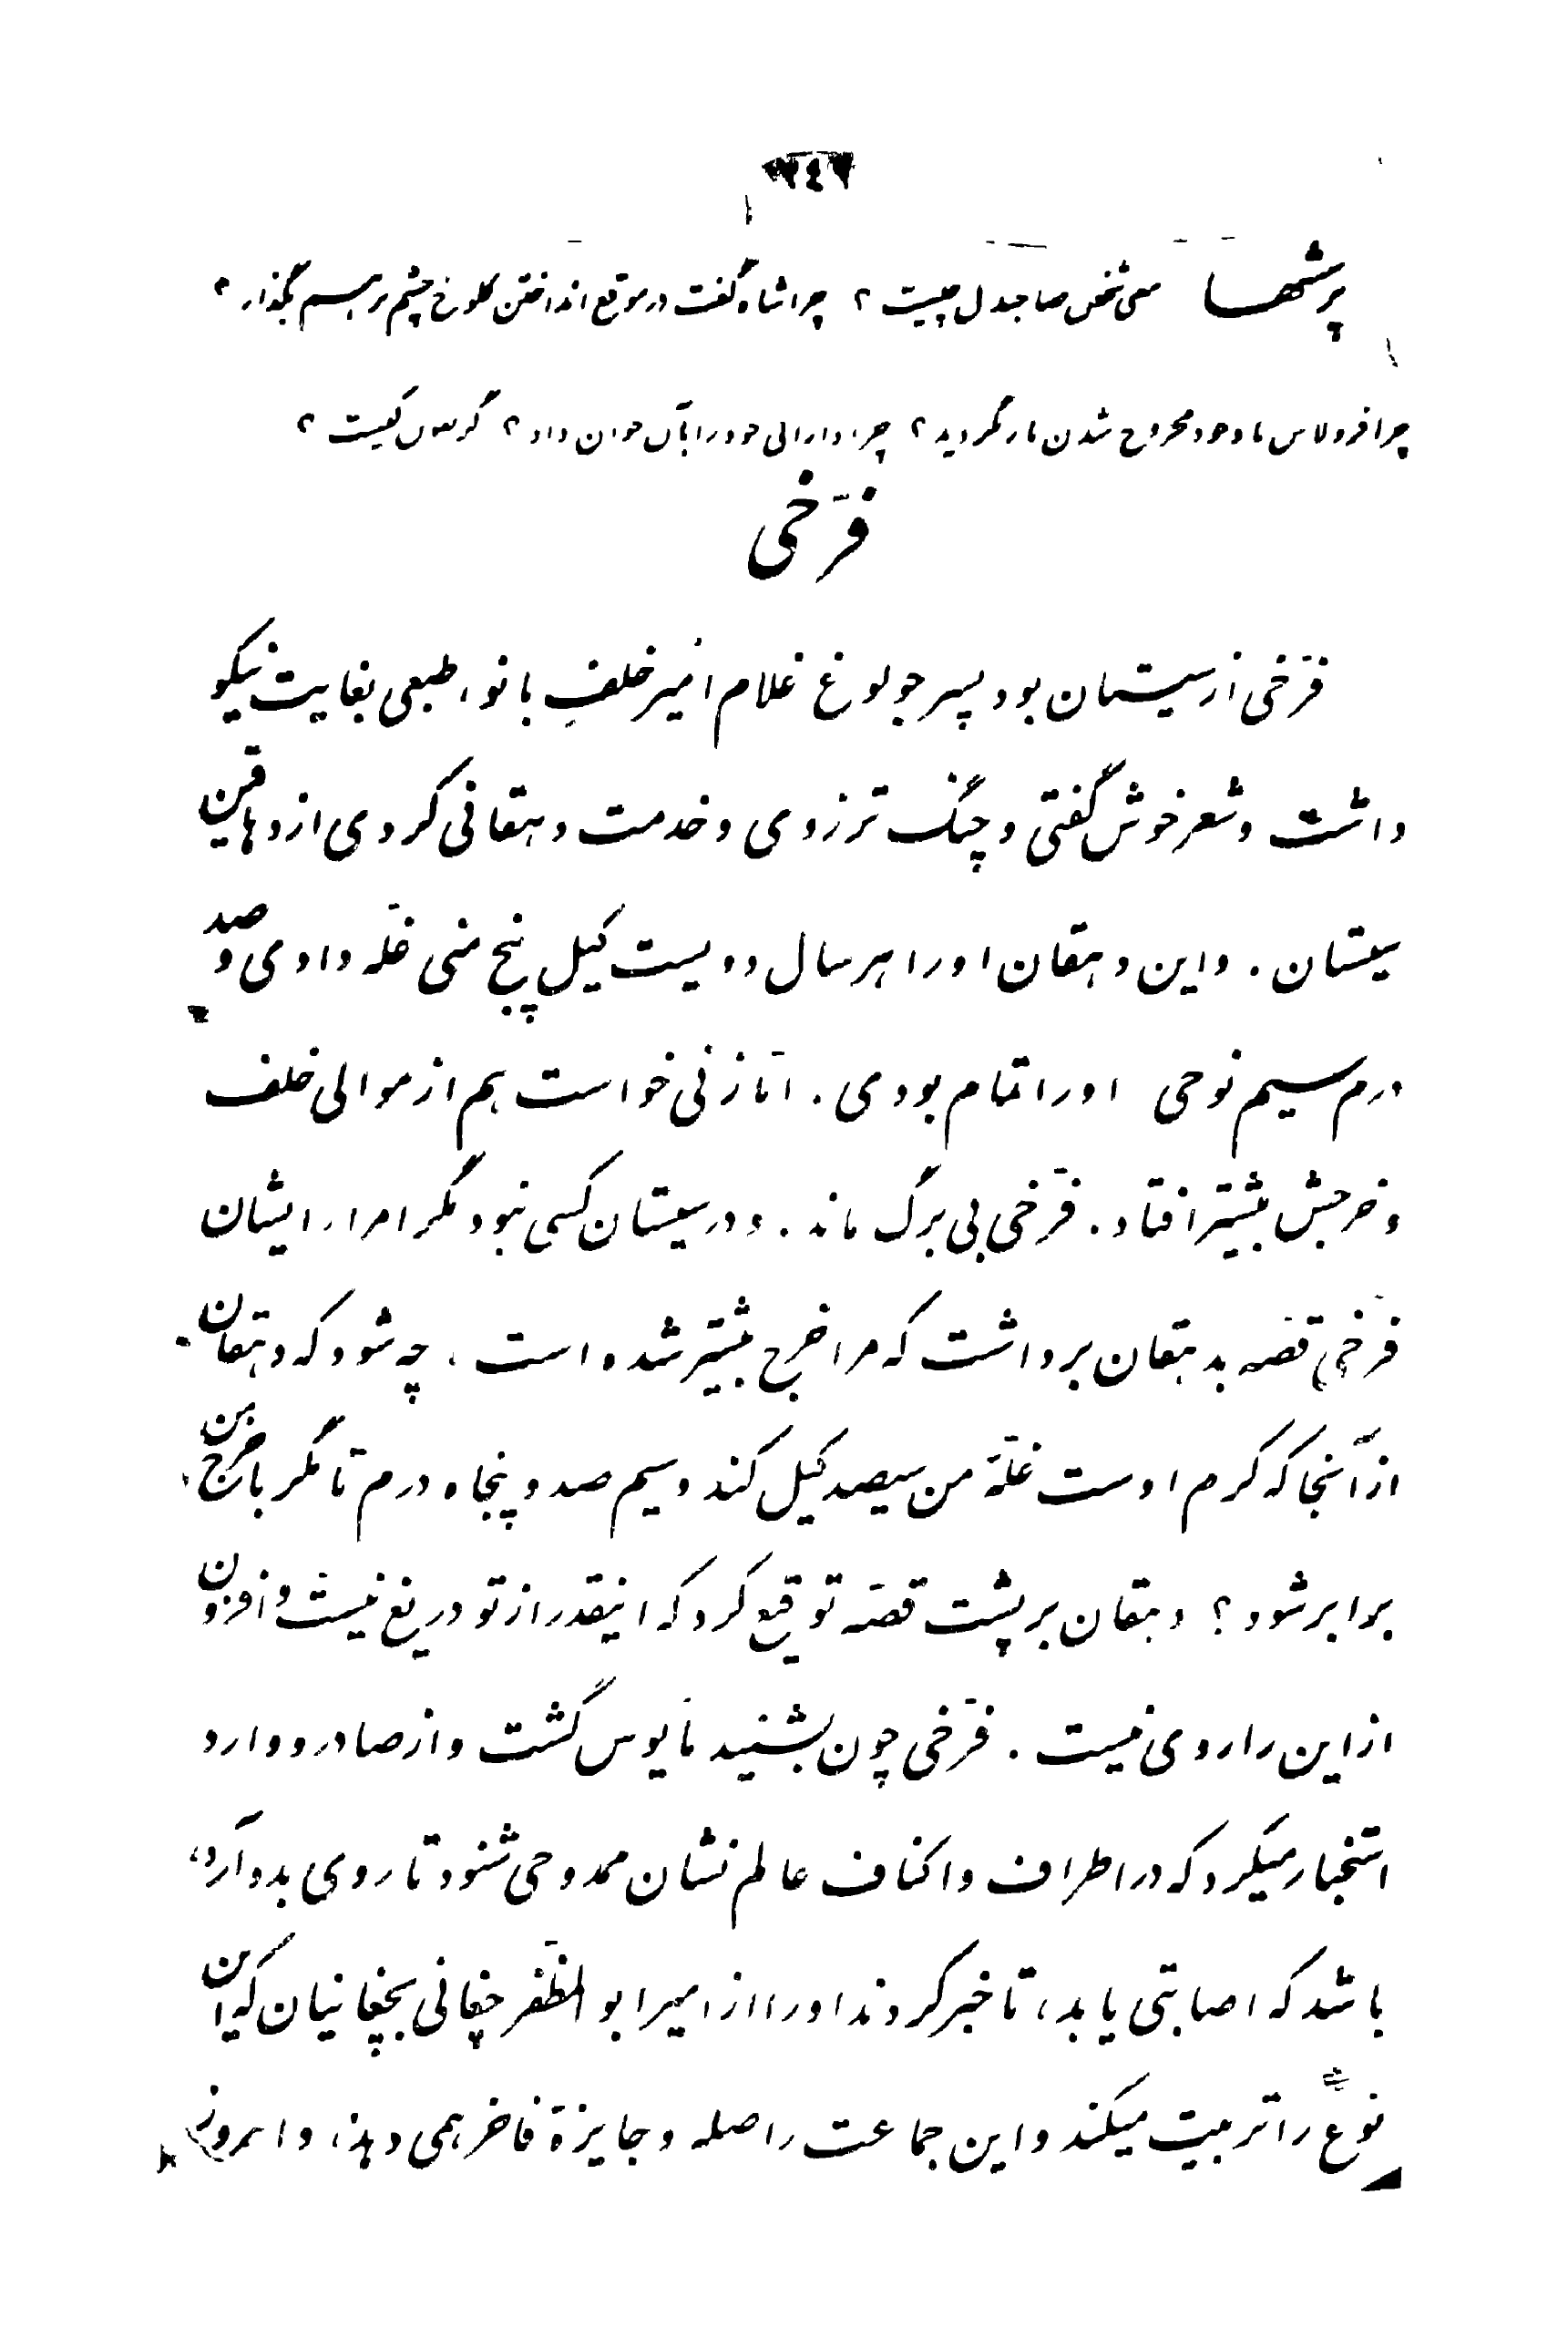 ۲٤۲
پرسشها معنی شخص صاحبدل چیست ؟ چرا شاه گفت در موقع انداختن کلوخ چشم بر هم بگذار ؟
چرا با وجود مجروح شدن باز گردید ؟ چرا دارائی خود را بآن جوان داد ؟ کیست ؟
فرّخی
فرّخی از سیستان بود پسر جولوغ غلام امیر خلف بانو، طبعی بغایت نیکو
داشت و شعر خوش گفتی و چنگ تر زدی و خدمت دهقانی کردی از دهاقین
سیستان . و این دهقان او را هر سال دویست کیل پنج منی غلّه دادی و صد
درم سیم نوحی او را تمام بودی . امّا زنی خواست هم از موالی خلف
و خرجش بیشتر افتاد . فرّخی بی برگ ماند . و در سیستان کسی نبود مگر امراء ایشان
فرّخی قصّه بدهقان برداشت که مرا خرج بیشتر شده است ، چه شود که دهقان
از آنجا که کرم اوست غلّهٔ من سیصد کیل کند و سیم صد و پنجاه درم تا مگر با خرج من
برابر شود ؟ دهقان بر پشت قصّه توقیع کرد که اینقدر از تو دریغ نیست و افزون
از این را روی نیست . فرّخی چون بشنید مأیوس گشت و از صادر و وارد
استخبار میکرد که در اطراف و اکناف عالم نشان ممدوحی شنود تا روی بدو آرد،
باشد که اصابتی یابد، تا خبر کردند او را از امیر ابوالمظّفر چغانی بچغانیان که این
نوع را تربیت میکند و این جماعت را صله و جایزهٔ فاخر همی دهد، و امروز